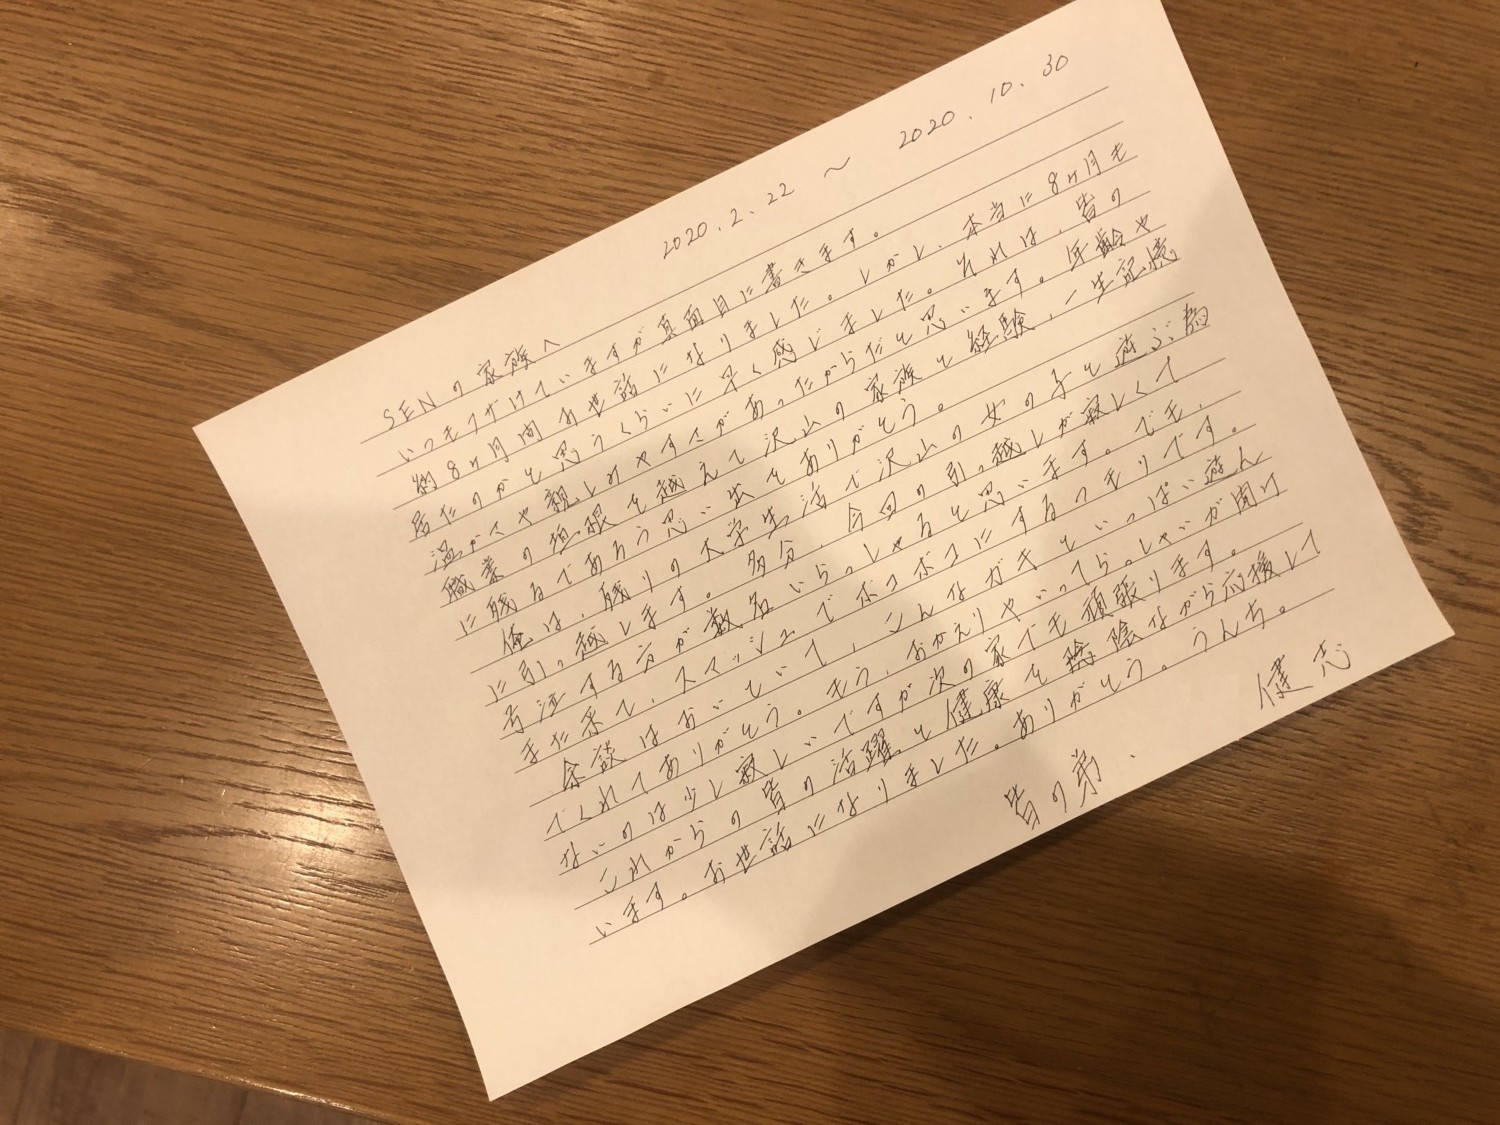 2020.2.22 〜 2020.10.30
SENの家族へ
いつもフザけていますが真面目に書きます。
約8ヶ月間お世話になりました。しかし、本当に8ヶ月も
居たのかと思うくらいに早く感じました。それは、皆の
温かさや親しみやすさがあったからだと思います。年齢や
職業の垣根を越えて沢山の家族と経験、一生記憶
に残るであろう思い出をありがとう。
俺は、残りの大学生活で沢山の女の子と遊ぶ為
に引っ越します。多分、今回の引っ越しが寂しくて
号泣する方が数名いらっしゃると思います。でも、
また来て、スマッシュでボコボコにするつもりです。
余談はおいていて、こんなガキといっぱい遊ん
でくれてありがとう。もう、おかえりやいってらっしゃいが聞け
ないのは少し寂しいですが次の家でも頑張ります。
これからの皆の活躍と健康を陰ながら応援して
います。お世話になりました。ありがとう。うんち。
皆の弟、 健志